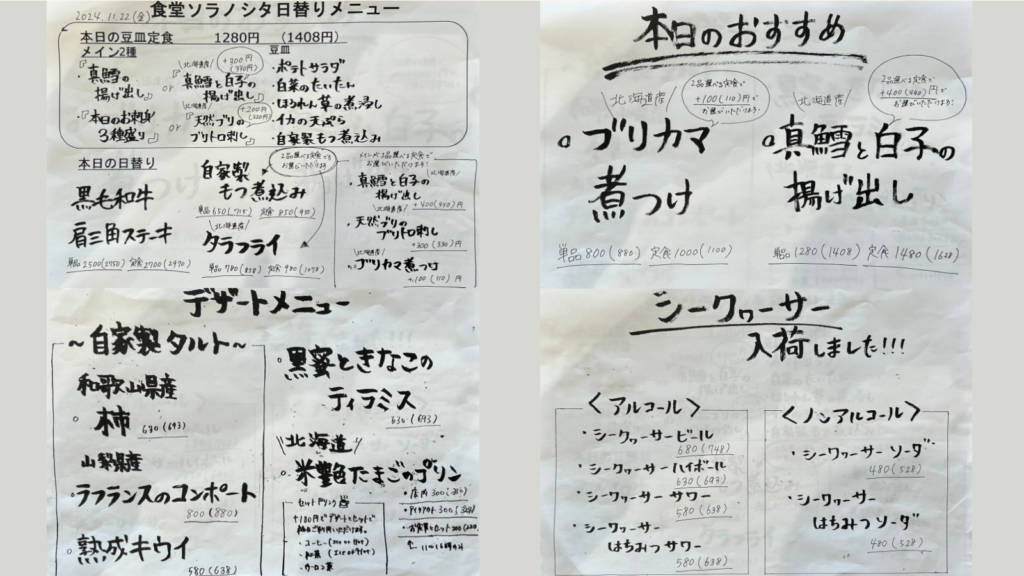 2024.11.22(金) 食堂ソラノシタ日替りメニュー
本日の豆皿定食 1280円 (1408円)
メイン2種
北海道産
+300円
(330円)
『・真鱈の
揚げ出し』
or
『真鱈と白子の
揚げ出し』
北海道産
+200円
(220円)
『・本日のお刺身
3種盛り』
or
『天然ブリの
ブリトロ刺し』
豆皿
・ポテトサラダ
・白菜のたいたん
・ほうれん草の煮浸し
・イカの天ぷら
・自家製もつ煮込み
本日の日替り
黒毛和牛
肩三角ステーキ
単品2500(2750) 定食2700(2970)
2品選べる定食でも
お選びいただけます
自家製
もつ煮込み
単品650(715) 定食850(935)
北海道産
タラフライ
単品780(858) 定食980(1078)
メインが2品選べる定食で
お選びいただけます!
北海道産
・真鱈と白子の
揚げ出し
+400(440)円
北海道産
・天然ブリの
ブリトロ刺し
+300(330)円
北海道産
・ブリカマ煮つけ
+100(110)円
本日のおすすめ
2品選べる定食で
+100(110)円で
お選びいただけます!
北海道産
・ブリカマ
煮つけ
単品800(880) 定食1000(1100)
2品選べる定食で
+400(440)円で
お選びいただけます!
北海道産
・真鱈と白子の
揚げ出し
単品1280(1408) 定食1480(1628)
デザートメニュー
~自家製タルト~
和歌山県産
・柿 630(693)
山梨県産
・ラフランスのコンポート
800(880)
・熟成キウイ
580(638)
・黒蜜ときなこの
ティラミス
630(693)
北海道
・米艶たまごのプリン
・店内
・テイクアウト
・お食事とセット
セットドリンク
+180円でデザートとセットで
・コーヒー
・紅茶
・ウーロン茶
シークヮーサー
入荷しました!!!
<アルコール>
・シークヮーサービール
680(748)
・シークヮーサーハイボール
630(693)
・シークヮーサーサワー
580(638)
・シークヮーサー
はちみつサワー
580(638)
<ノンアルコール>
・シークヮーサーソーダ
480(528)
・シークヮーサー
はちみつソーダ
480(528)